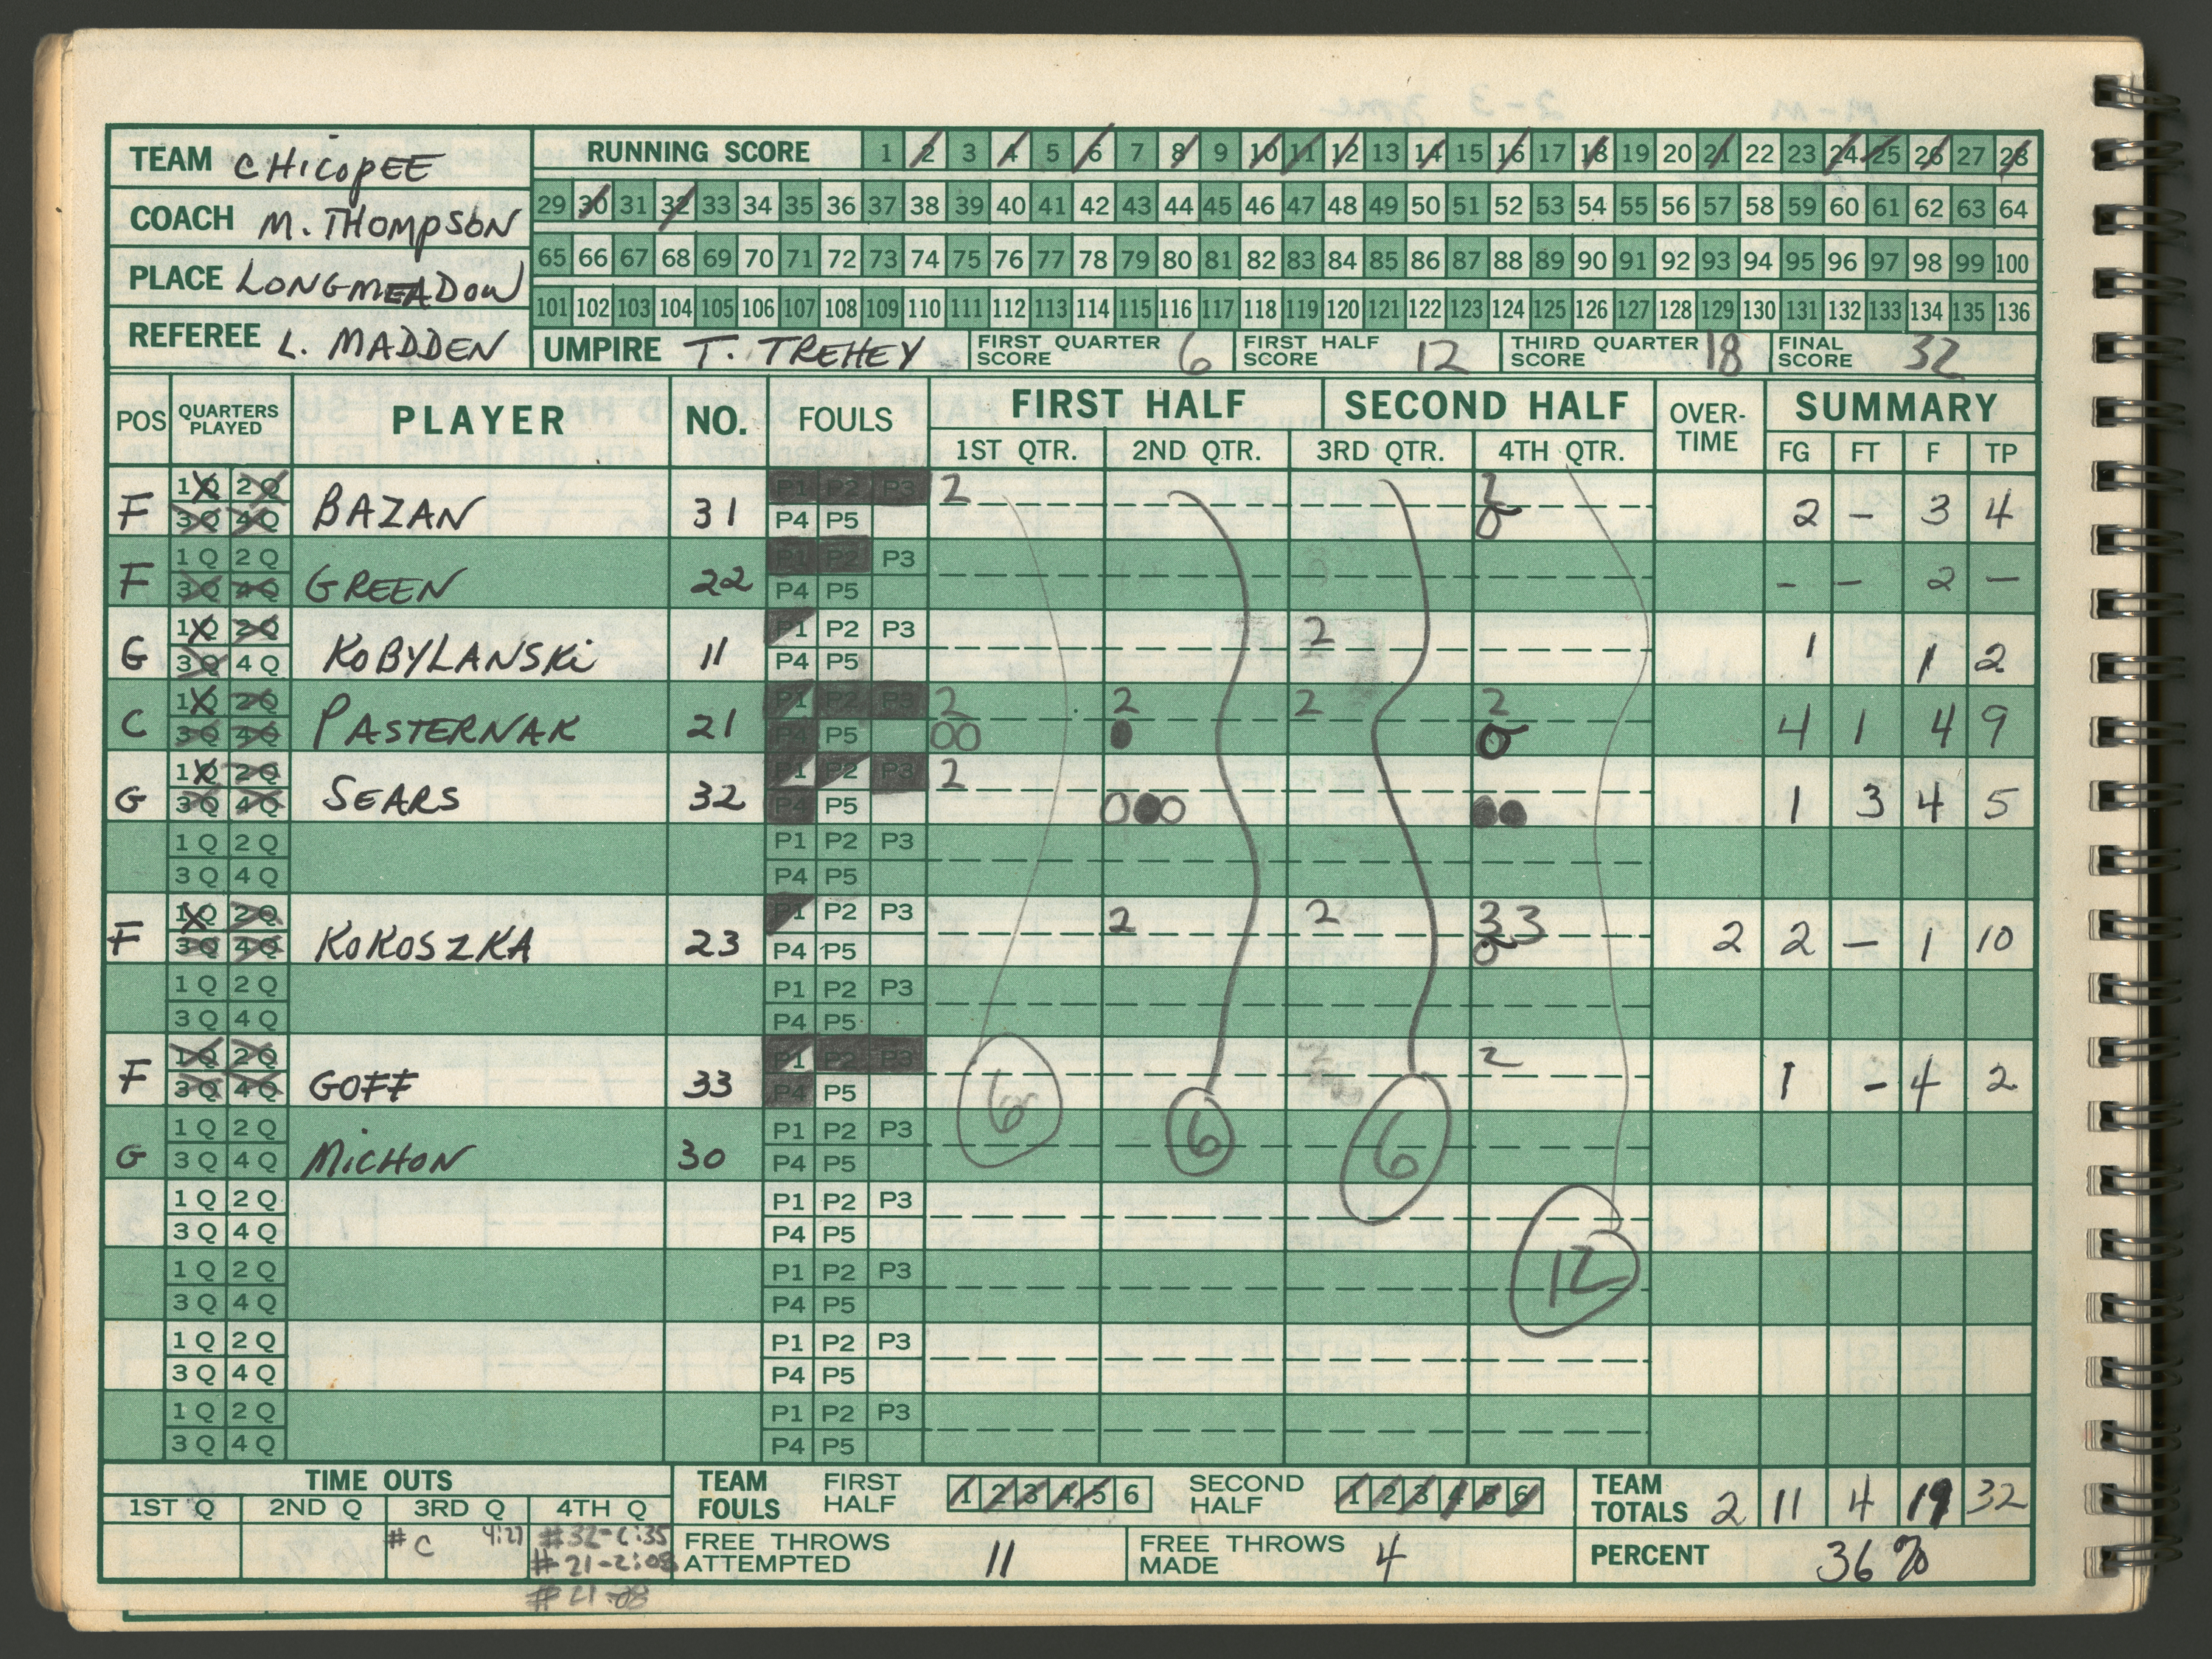 TEAM CHicopEE
COACH M. THOMPSON
PLACE LONGMEADOW
REFEREE L. MADDEN
RUNNING SCORE 1 2 3 4 5 6 7 8 9 10 11 12 13 14 15 16 17 18 19 20 21 22 23 24 25 26 27 28
29 30 31 32 33 34 35 36 37 38 39 40 41 42 43 44 45 46 47 48 49 50 51 52 53 54 55 56 57 58 59 60 61 62 63 64
65 66 67 68 69 70 71 72 73 74 75 76 77 78 79 80 81 82 83 84 85 86 87 88 89 90 91 92 93 94 95 96 97 98 99 100
101 102 103 104 105 106 107 108 109 110 111 112 113 114 115 116 117 118 119 120 121 122 123 124 125 126 127 128 129 130 131 132 133 134 135 136
UMPIRE T. TREHEY FIRST QUARTER SCORE 6 FIRST HALF SCORE 12 THIRD QUARTER SCORE 18 FINAL SCORE 32
POS QUARTERS PLAYED PLAYER NO. FOULS FIRST HALF SECOND HALF OVER-TIME SUMMARY
1ST QTR. 2ND QTR. 3RD QTR. 4TH QTR. FG FT F TP
1Q 2Q P1 P2 P3 2 2
F 3Q 4Q BAZAN 31 P4 P5 0 2 – 3 4
1Q 2Q P1 P2 P3
F 3Q 4Q GREEN 22 P4 P5 - – 2 –
1Q 2Q P1 P2 P3 2
G 3Q 4Q KoBYLANSKi 11 P4 P5 1 1 2
1Q 2Q P1 P2 P3 2 2 2 2
C 3Q 4Q PASTERNAK 21 P4 P5 00 0 0 4 1 4 9
1Q 2Q P1 P2 P3 2
G 3Q 4Q SEARS 32 P4 P5 000 00 1 3 4 5
1Q 2Q P1 P2 P3
3Q 4Q P4 P5
1Q 2Q P1 P2 P3 2 2 33
F 3Q 4Q KOKOSZKA 23 P4 P5 0 2 2 – 1 10
1Q 2Q P1 P2 P3
3Q 4Q P4 P5
1Q 2Q P1 P2 P3 2
F 3Q 4Q GOFF 33 P4 P5 6 1 – 4 2
1Q 2Q P1 P2 P3 6 6
G 3Q 4Q MiCHON 30 P4 P5
1Q 2Q P1 P2 P3
3Q 4Q P4 P5
1Q 2Q P1 P2 P3 12
3Q 4Q P4 P5
1Q 2Q P1 P2 P3
3Q 4Q P4 P5
1Q 2Q P1 P2 P3
3Q 4Q P4 P5
TIME OUTS
1ST Q 2ND Q 3RD Q 4TH Q
# C 4:27 #32-
#21-2:08
#21-
TEAM FOULS FIRST HALF 1 2 3 4 5 6 SECOND HALF 1 2 3 4 5 6 TEAM TOTALS 2 11 4 19 32
FREE THROWS ATTEMPTED 11 FREE THROWS MADE 4 PERCENT 36%